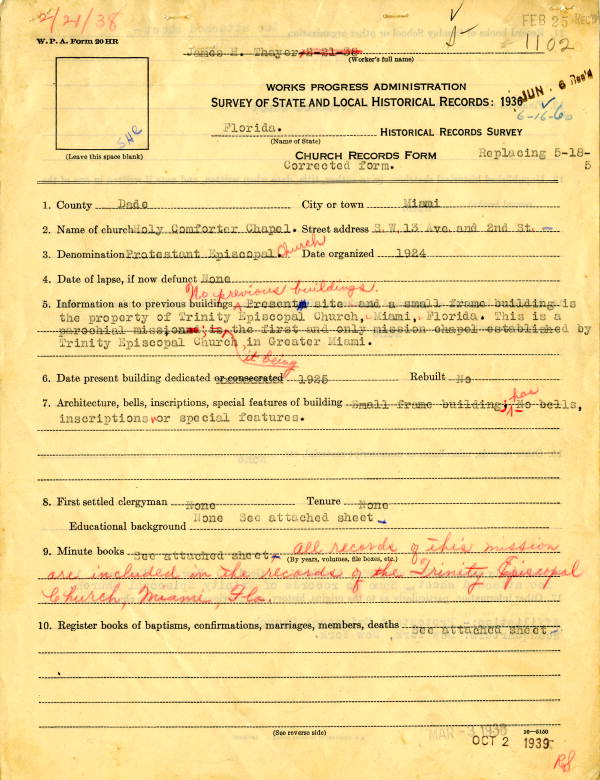 2/21/38
FEB 25 REC'D
1102
W. P. A. Form 20 HR
James H. Thayer 2-21-38
(Worker's full name)
WORKS PROGRESS ADMINISTRATION
SURVEY OF STATE AND LOCAL HISTORICAL RECORDS: 1936
JUN 6 Rec'd
6-16-60
(Leave this space blank)
Florida.
HISTORICAL RECORDS SURVEY
(Name of State)
CHURCH RECORDS FORM
Replacing 5-18-5
Corrected form.
1. County Dade City or town Miami
2. Name of church Holy Comforter Chapel. Street address S.W. 13 Ave. and 2nd St.
3. Denomination Protestant Episcopal. Church Date organized 1924
4. Date of lapse, if now defunct None
No previous buildings.
5. Information as to previous buildings Present site and a small frame building is
the property of Trinity Episcopal Church, Miami, Florida. This is a
parochial mission, is the first and only mission chapel established by
Trinity Episcopal Church in Greater Miami.
it being
6. Date present building dedicated or consecrated 1925 Rebuilt No
has
7. Architecture, bells, inscriptions, special features of building Small frame building; No bells,
inscriptions or special features.
8. First settled clergyman None Tenure None
Educational background None See attached sheet
9. Minute books See attached sheet. All records of this mission
(By years, volumes, file boxes, etc.)
are included in the records of the Trinity Episcopal
Church, Miami, Fla.
10. Register books of baptisms, confirmations, marriages, members, deaths See attached sheet
(See reverse side)
MAR - 3 1938
16-5150
OCT 2 1939